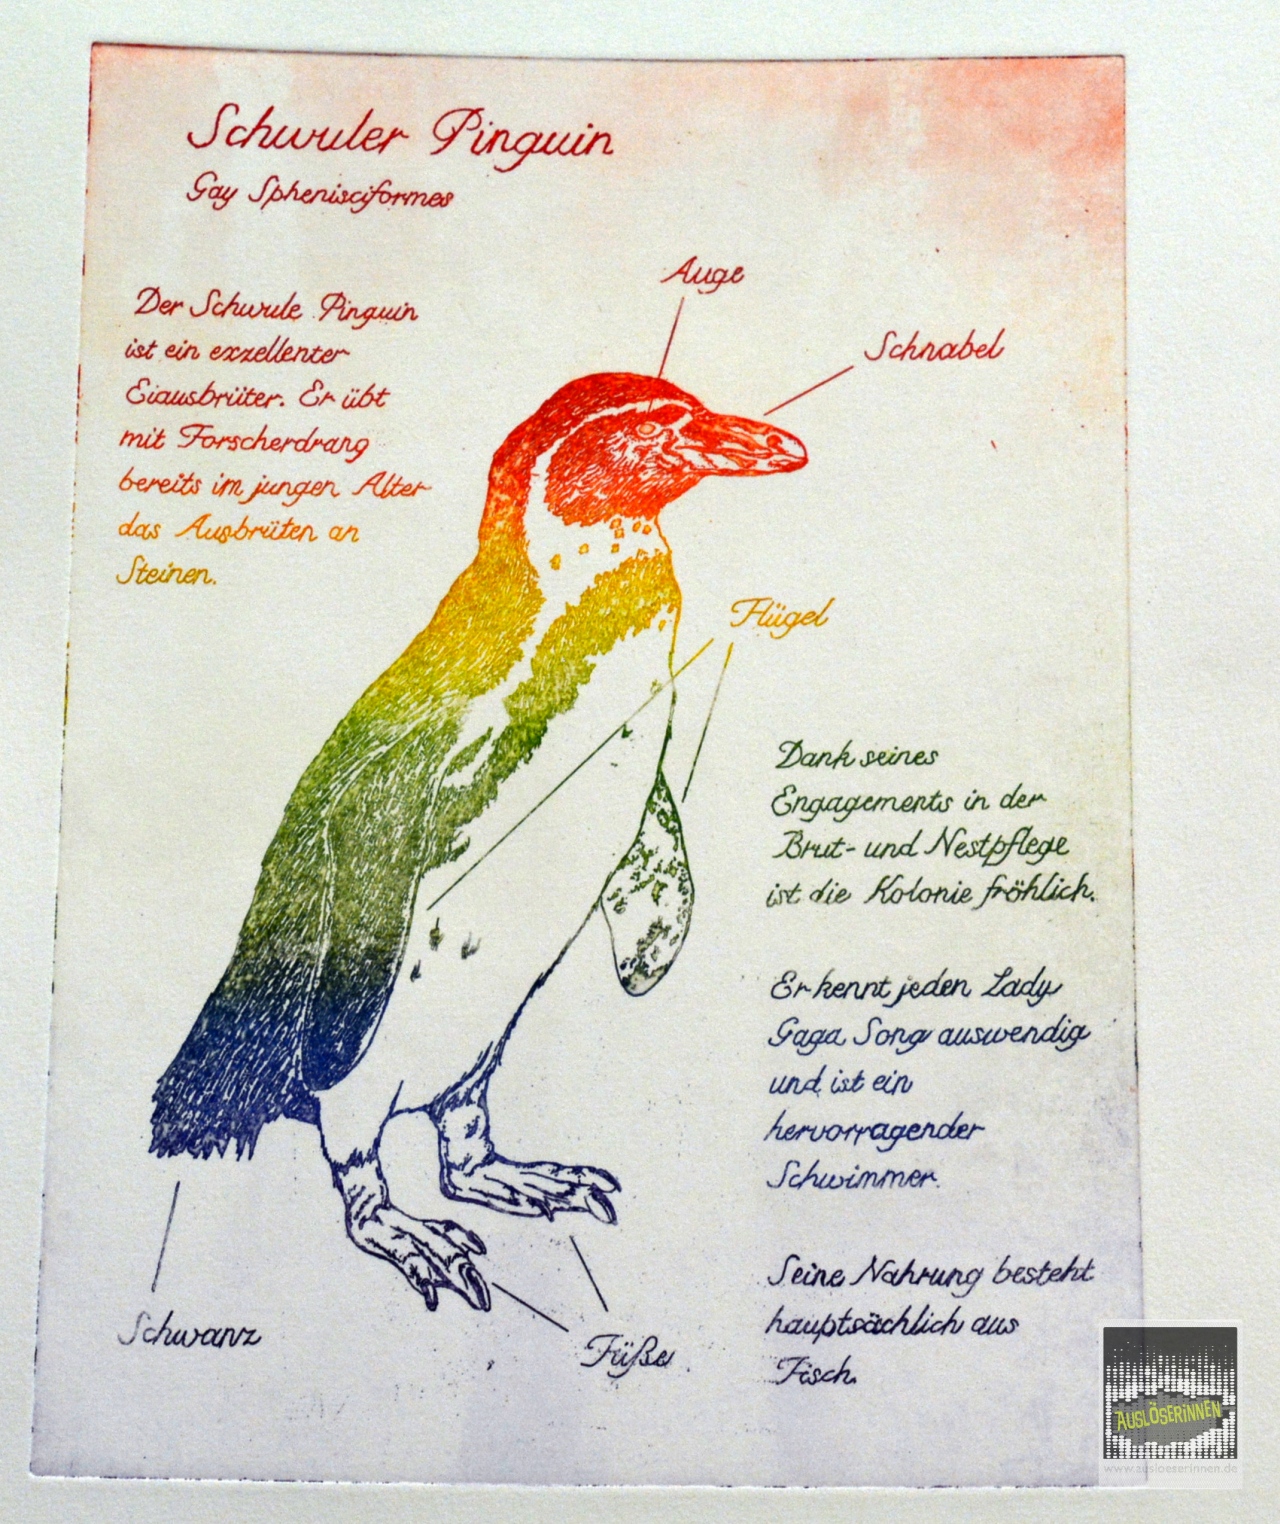 Schwuler Pinguin
Gay Sphenisciformes
Auge
Schnabel
Der Schwule Pinguin
ist ein exzellenter
Eiausbrüter. Er übt
mit Forscherdrang
bereits im jungen Alter
das Ausbrüten an
Steinen.
Flügel
Dank seines
Engagements in der
Brut- und Nestpflege
ist die Kolonie fröhlich.
Er kennt jeden Lady
Gaga Song auswendig
und ist ein
hervorragender
Schwimmer.
Seine Nahrung besteht
hauptsächlich aus
Fisch.
Schwanz
Füße
AUSLÖSERiNNEN
www.ausloeserinnen.de